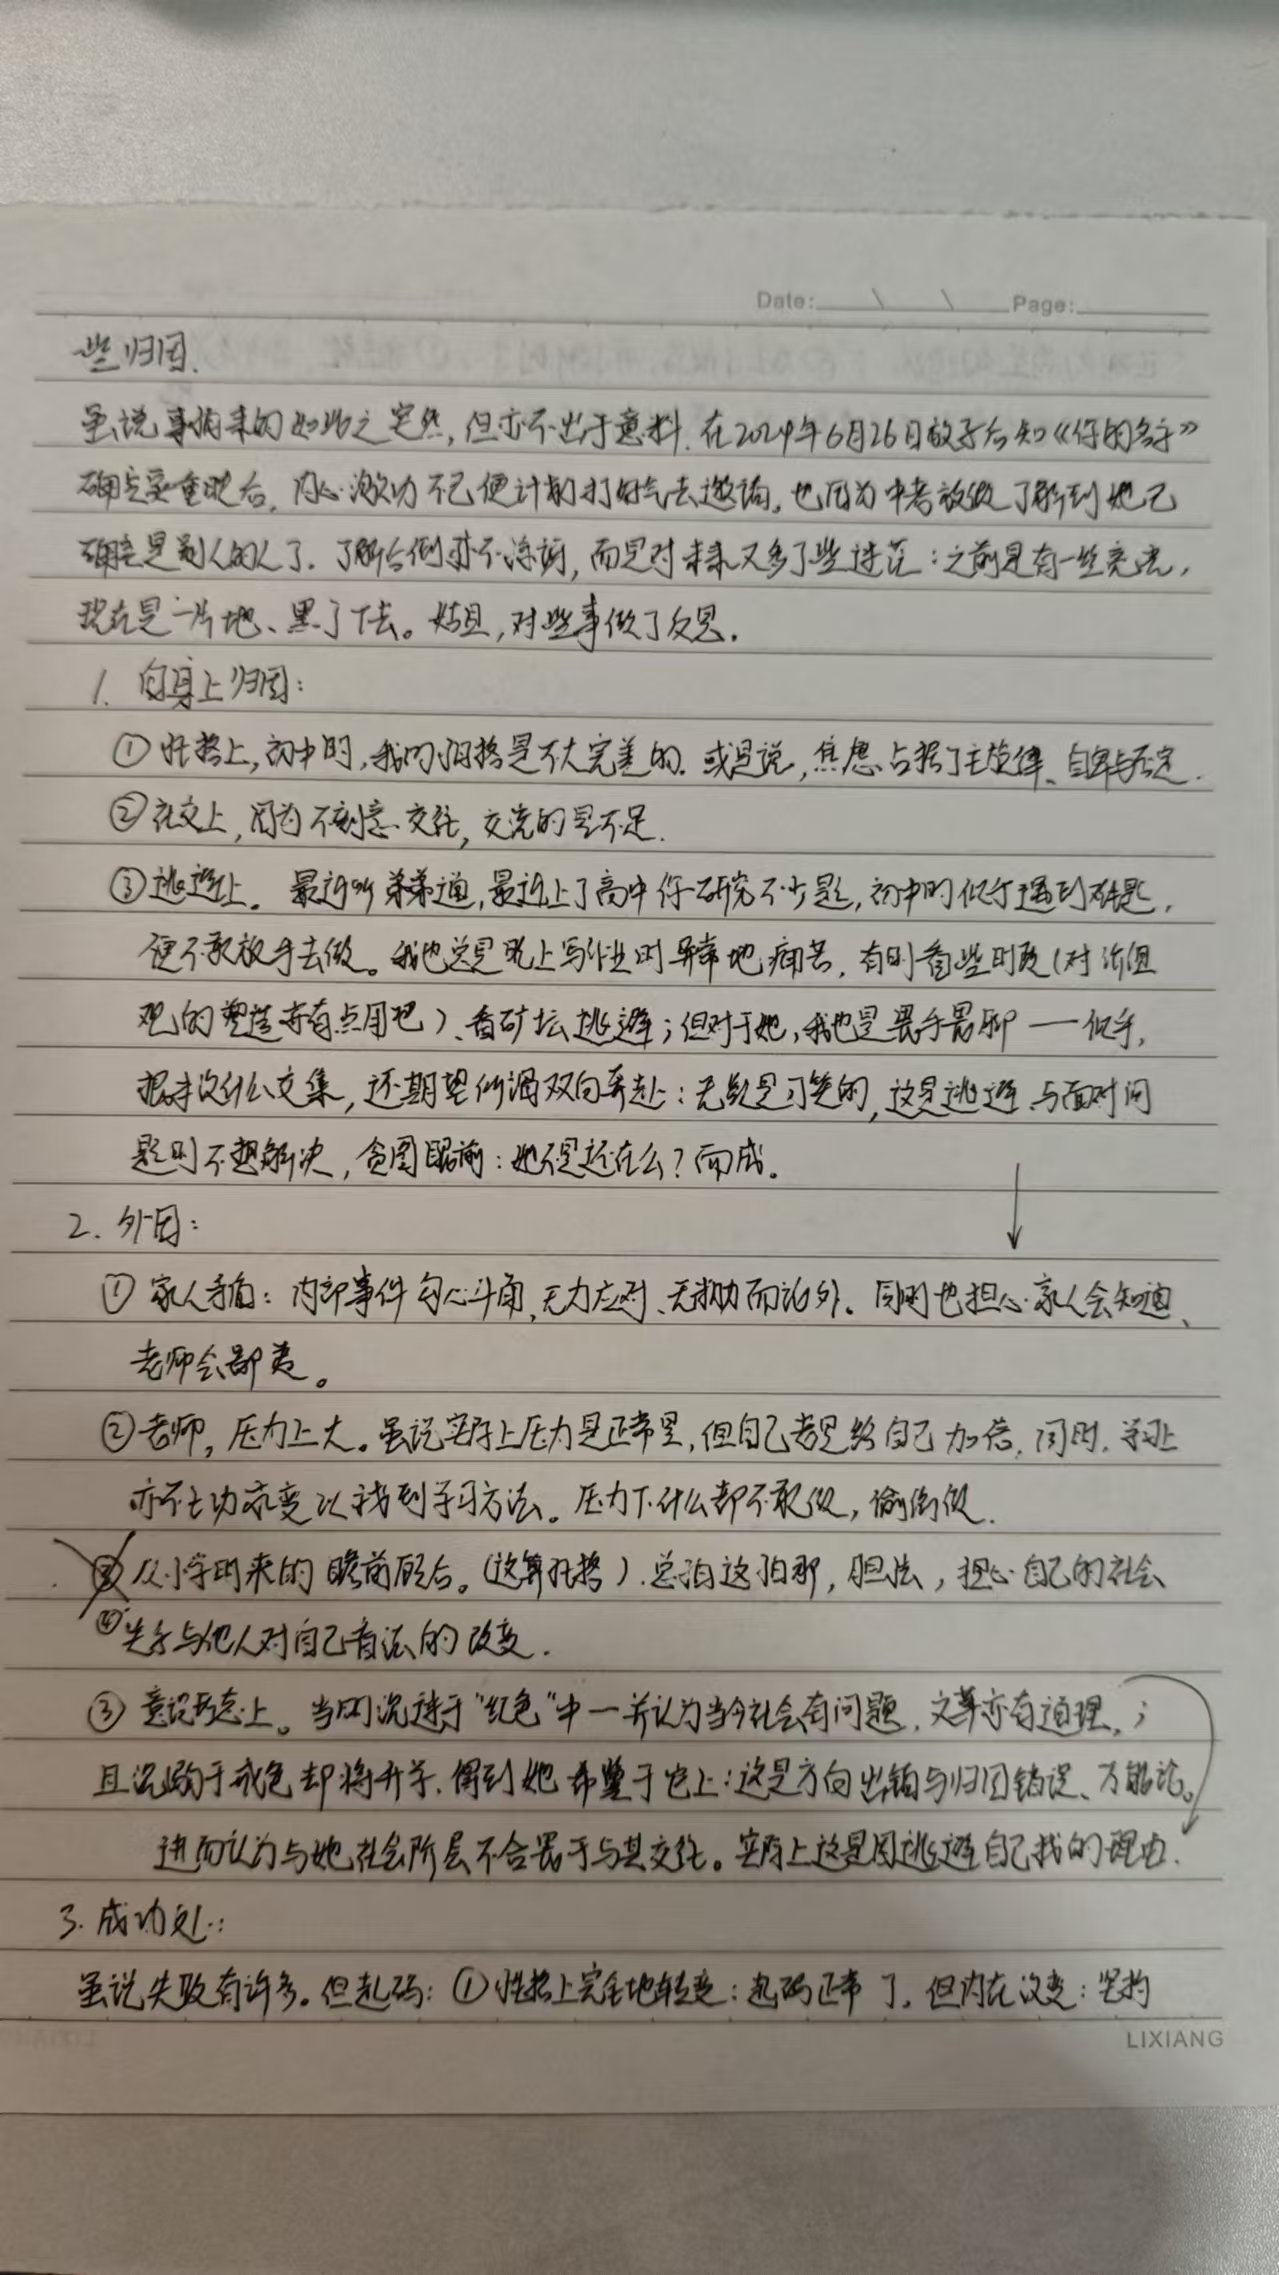 Date: \ \ Page:
些归因.
虽说事情来的如此之突然,但亦不出于意料.在2024年6月26日放学后知《你的名字》
确定要重映后,内心激动不已便计划打好气去邀请。也因为中考放假了解到她已
确定是别人的人了.了解后倒并不深,而是对未来又多了些迷茫:之前是有一些亮光,
现在是一片地、黑了下去。姑且,对些事做了反思.
1. 自身上归因:
①性格上,初中时,我的性格是不大完善的.或是说,焦虑占据了主旋律、自卑与否定.
②社交上,因为不刻意交往,交流的是不足.
③逃避上。最近听弟弟道,最近上了高中你研究不少题,初中时似乎遇到难题,
便不敢放手去做。我也总是晚上写作业时异常地痛苦,有时看些时政(对价值
观的塑造亦有点用吧)、看矿坛逃避;但对于她,我也是畏手畏脚——似乎,
根本没什么交集,还期望所谓双向奔赴:无疑是可笑的,这是逃避与面对问
题时不想解决,贪图眼前:她不是还在么?而成。
2. 外因:
① 家人矛盾:内部事件勾心斗角,无力应对、无助而论外。同时也担心家人会知道、
老师会部责。
②老师,压力上大。虽说实际上压力是正常里,但自己老是给自己加倍,同时,学习上
亦不主动求变以找到学习方法。压力下什么都不敢做,偷偷做.
③从小学时来的瞻前顾后。(这算性格).总怕这怕那,胆怯,担心自己的社会
④ 与他人对自己看法的改变.
③ 意识形态上。当时沉迷于“红色”中一并认为当今社会有问题,文革亦有道理,;
且沉湎于戒色却将升学、得到她希望于它上:这是方向出错与归因错误、万能论。
进而认为与她社会阶层不合畏于与其交往。实际上这是因逃避自己找的理由.
3. 成功处:
虽说失败有许多。但起码:①性格上完全地转变:起码正常了,但内在没变:坚韧
LIXIANG